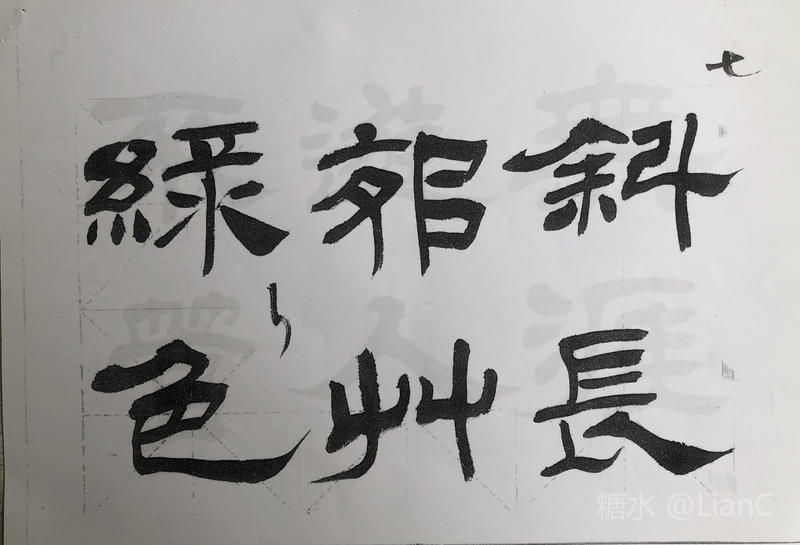 七
斜長
郊艸
綠〻色
糖水 @LianC